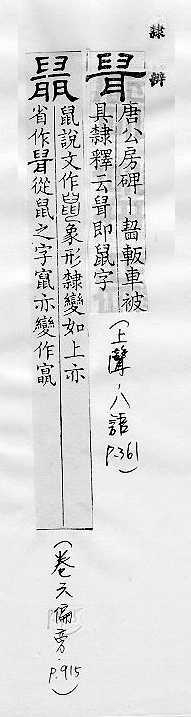 隸辨
唐公房碑丨齧車被
具隸釋云即鼠字
(上聲·八語 P.361)
鼠說文作象形隸變如上亦
省作從鼠之字竄亦變作
(卷六偏旁·P.915)